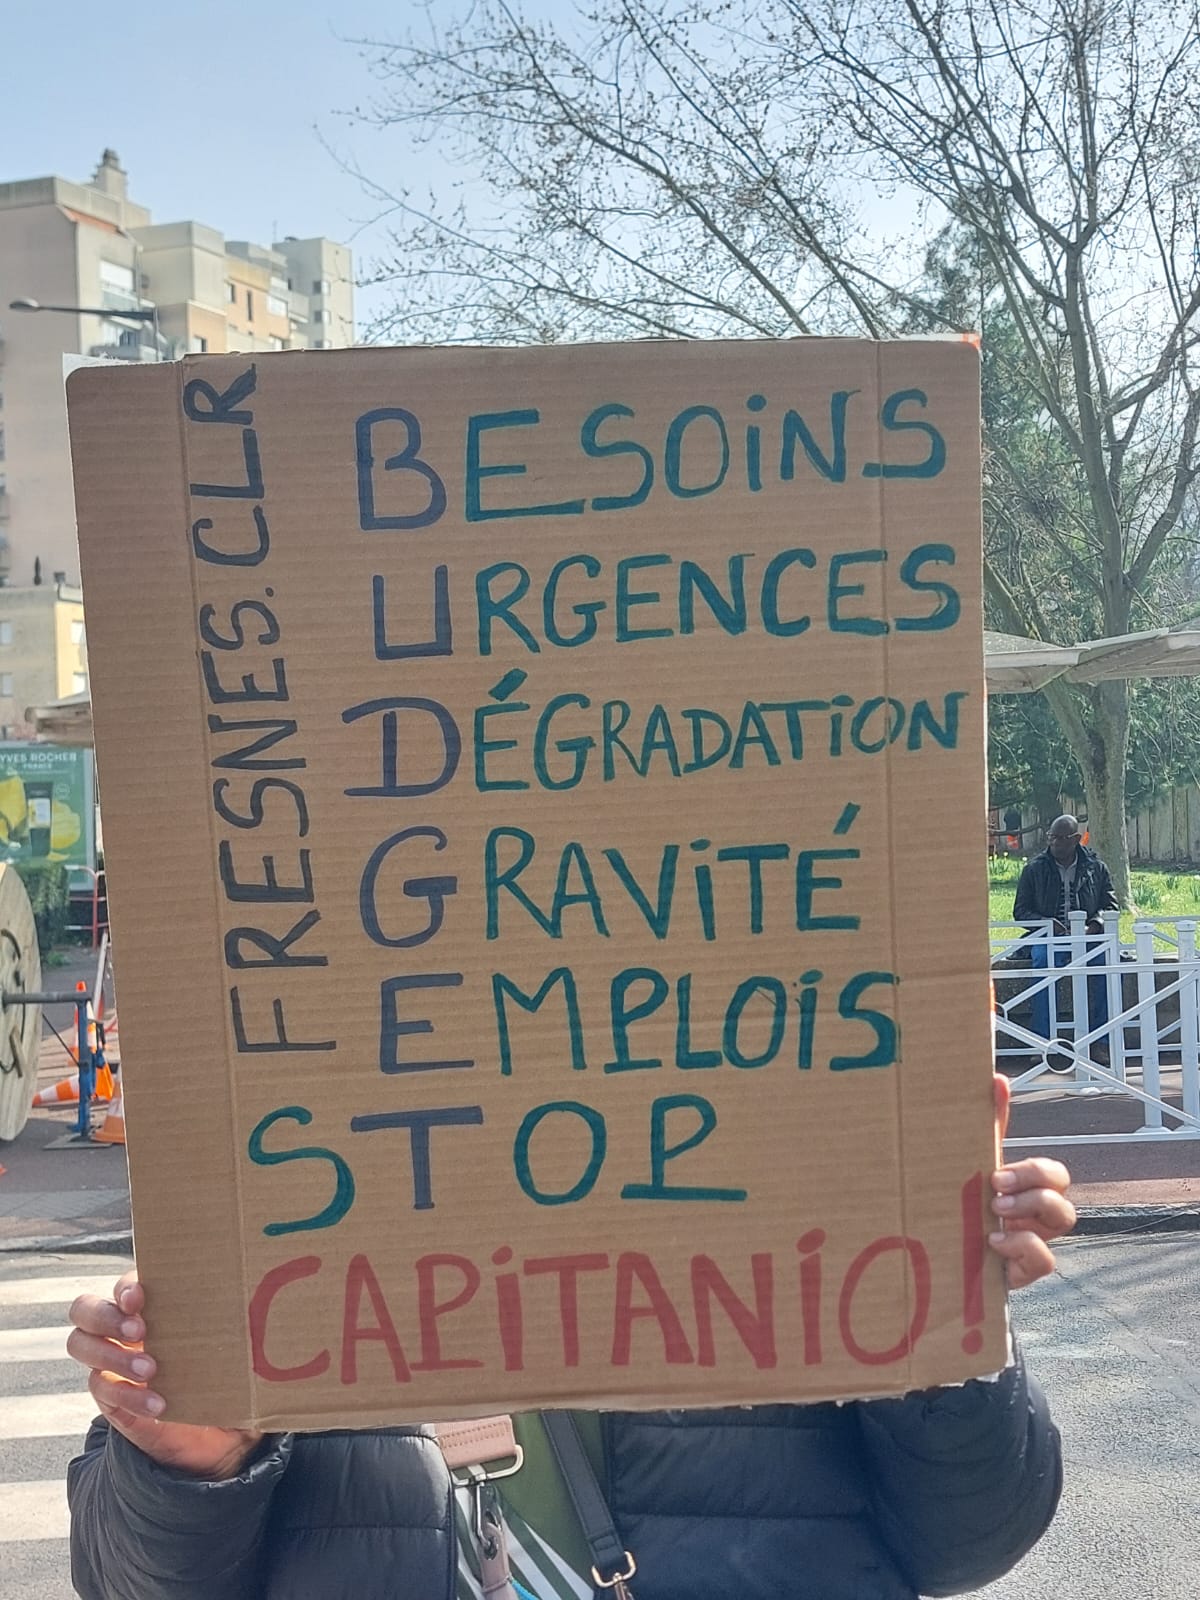 FRESNES.CLR
BESOiNS
URGENCES
DÉGRADATiON
GRAViTÉ
EMPLOiS
STOP
CAPiTANiO!
YVES ROCHER
FRANCE